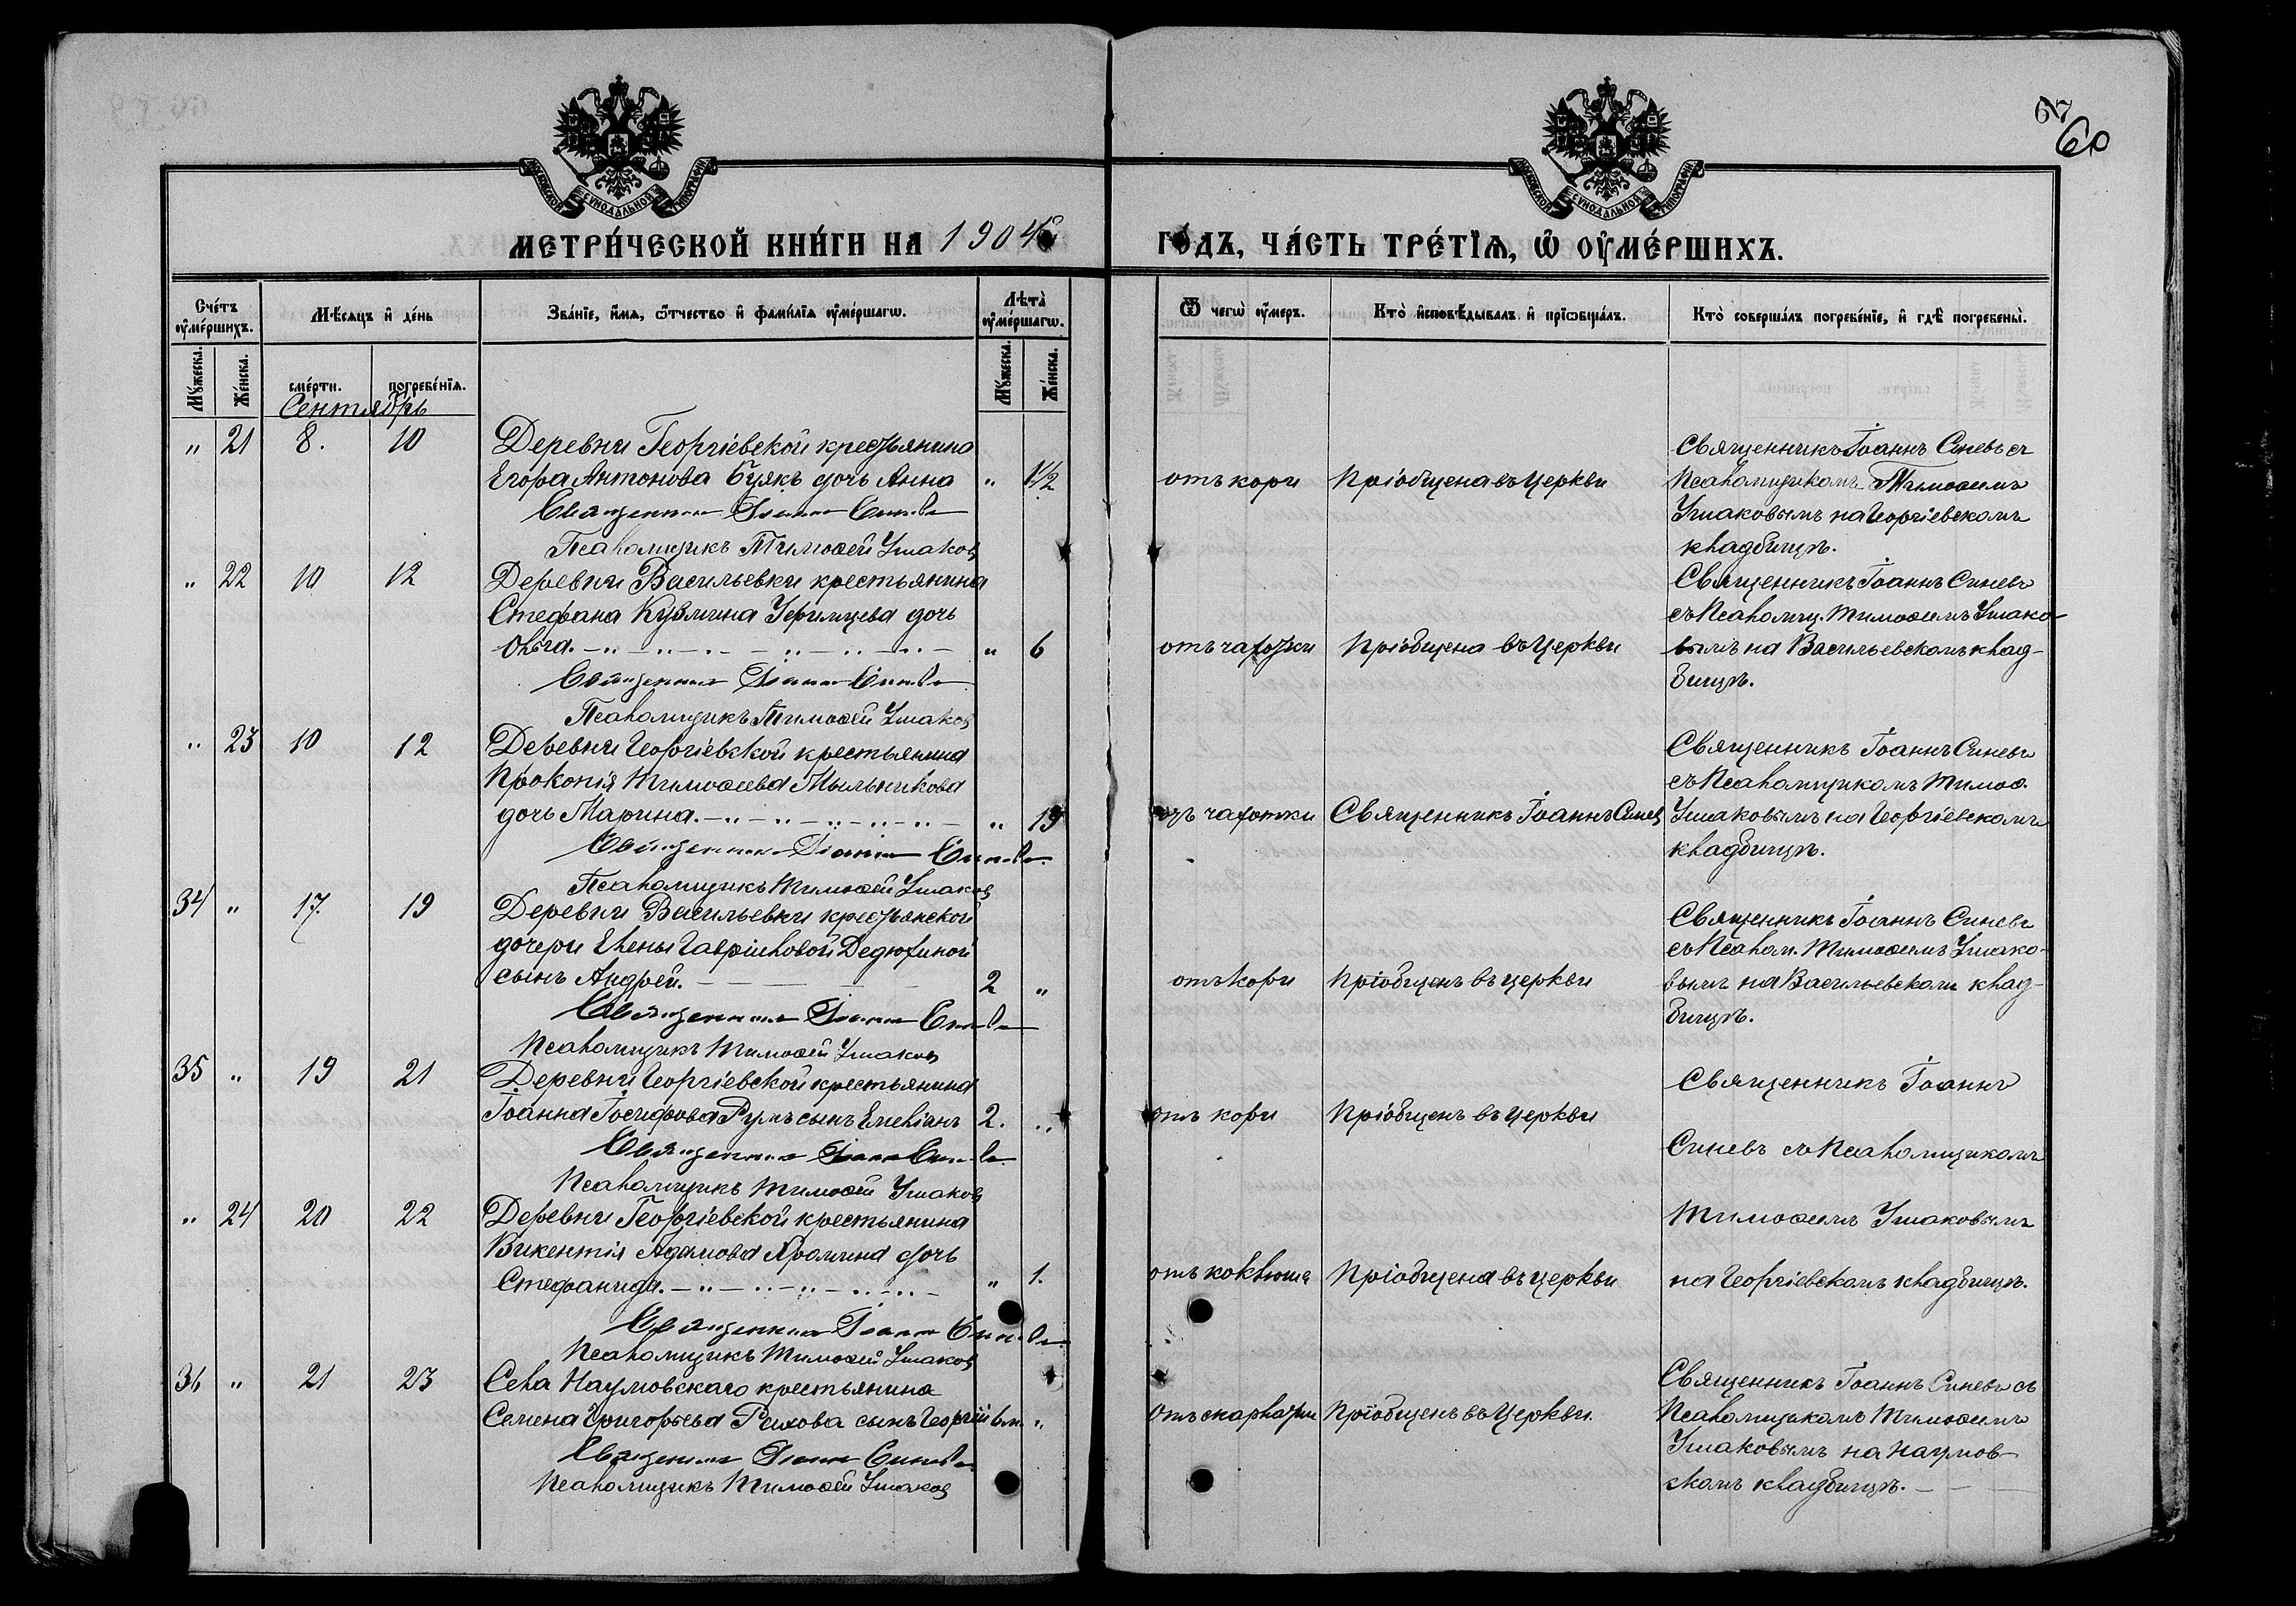 67
60
МОСКОВСКОЙ СУНОДАЛЬНОЙ ТИПОГРАФІИ
МОСКОВСКОЙ СУНОДАЛЬНОЙ ТИПОГРАФІИ
МЕТРИ́ЧЕСКОЙ КНИ́ГИ НА 1904
ГО́ДЪ, ЧА́СТЬ ТРЕ́ТІѦ, Ѡ҆ ОУ҆МЕ́РШИХЪ.
Сче́тъ оу҆ме́ршихъ.
Мѣ́сяцъ и҆ де́нь
Зва́нїе, и҆́мя, ѻ҆́тчество и҆ фами́лїя оу҆ме́ршагѡ.
Лѣ́та оу҆ме́ршагѡ.
Ѿ чегѡ̀ оу҆́меръ.
Кто̀ и҆сповѣ́дывалъ и҆ прїѡбща́лъ.
Кто̀ соверша́лъ погребе́нїе, и҆ гдѣ̀ погребены̀.
Му́жеска.
Же́нска.
сме́рти.
погребе́нїя.
Му́жеска.
Же́нска.
Сентябрь
„ 21 8. 10 Деревни Георгіевской крестьянина
Егора Антонова Буякъ дочь Анна „ 1½
Священникъ Іоаннъ Синевъ
Псаломщикъ Тимоѳей Ушаковъ
отъ кори Пріобщена въ Церкви
Священникъ Іоаннъ Синевъ съ
Псаломщикомъ Тимоѳеемъ
Ушаковымъ на Георгіевскомъ
кладбищѣ.
„ 22 10 12 Деревни Васильевки крестьянина
Стефана Кузмина Уфимцева дочь
Ольга. „ 6
Священникъ Іоаннъ Синевъ
Псаломщикъ Тимоѳей Ушаковъ
отъ чахотки Пріобщена въ Церкви
Священникъ Іоаннъ Синевъ
съ Псаломщ. Тимоѳеемъ Ушако-
вымъ на Васильевскомъ клад-
бищѣ.
„ 23 10 12 Деревни Георгіевской крестьянина
Прокопія Тимоѳеева Мыльникова
дочь Марина. „ 19
Священникъ Іоаннъ Синевъ
Псаломщикъ Тимоѳей Ушаковъ
отъ чахотки Священникъ Іоаннъ Синевъ
Священникъ Іоаннъ Синевъ
съ Псаломщикомъ Тимоѳ.
Ушаковымъ на Георгіевскомъ
кладбищѣ.
34 „ 17. 19 Деревни Васильевки крестьянской
дочери Елены Гавріиловой Дедюхиной
сынъ Андрей. 2 „
Священникъ Іоаннъ Синевъ
Псаломщикъ Тимоѳей Ушаковъ
отъ кори Пріобщенъ въ церкви
Священникъ Іоаннъ Синевъ
съ Псалом. Тимоѳеемъ Ушако-
вымъ на Васильевскомъ клад-
бищѣ.
35 „ 19 21 Деревни Георгіевской крестьянина
Іоанна Іосифова Румъ сынъ Емеліанъ 2. „
Священникъ Іоаннъ Синевъ
Псаломщикъ Тимоѳей Ушаковъ
отъ кори Пріобщенъ въ церкви
Священникъ Іоаннъ
Синевъ съ Псаломщикомъ
„ 24 20 22 Деревни Георгіевской крестьянина
Викентія Адамова дочь
Стефанида. „ 1.
Священникъ Іоаннъ Синевъ
Псаломщикъ Тимоѳей Ушаковъ
отъ коклюша Пріобщена въ церкви
Тимоѳеемъ Ушаковымъ
на Георгіевскомъ кладбищѣ.
36 „ 21 23 Села Наумовскаго крестьянина
Семена Григорьева сынъ Георгій 6 м. „
Священникъ Іоаннъ Синевъ
Псаломщикъ Тимоѳей Ушаковъ
Отъ скарлатин Пріобщенъ въ Церкви
Священникъ Іоаннъ Синевъ съ
Псаломщикомъ Тимоѳеемъ
Ушаковымъ на Наумов-
скомъ кладбищѣ.